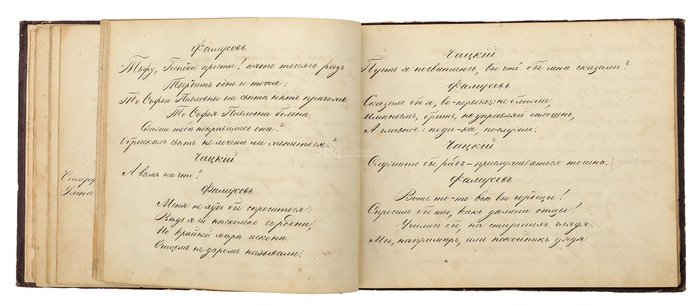 Фамусовъ
Тьфу, Господи прости! пять тысячъ разъ
Твердитъ одно и тоже:
То Софьи Павловны на свѣтѣ нѣтъ пригоже
То Софья Павловна больна.
Скажи тебѣ понравилась она?
Обрыскалъ свѣтъ не хочешь ли жениться?
Чацкій
А вамъ на что?
Фамусовъ
Меня не худо бы спроситься;
Вѣдь я ей нѣсколько сродни,
По крайней мѣрѣ искони
Отцемъ не даромъ называли.
Чацкій
Пусть я посватаюсь, вы что бы мнѣ сказали?
Фамусовъ
Сказалъ бы я, во-первыхъ: не блажи,
Имѣньемъ, братъ, не управляй оплошно,
А главное: поди-ка, послужи.
Чацкій
Служить бы радъ – прислуживаться тошно.
Фамусовъ
Вотъ, то-то всѣ вы гордецы!
Спросили бы, какъ дѣлали отцы?
Учились бы, на старшихъ глядя
Мы, напримѣръ, или покойникъ дядя